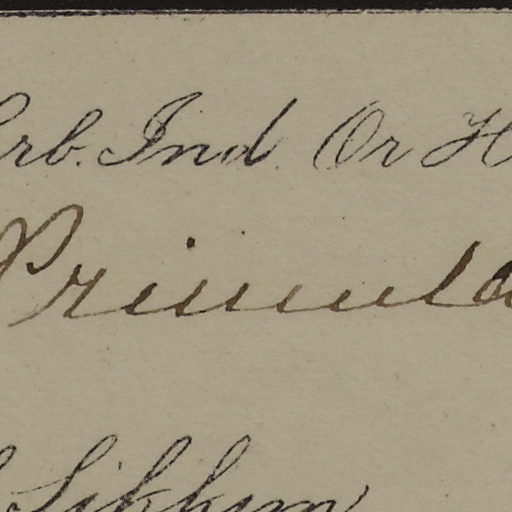 erb. Ind. Or H
Primula
Sikkim